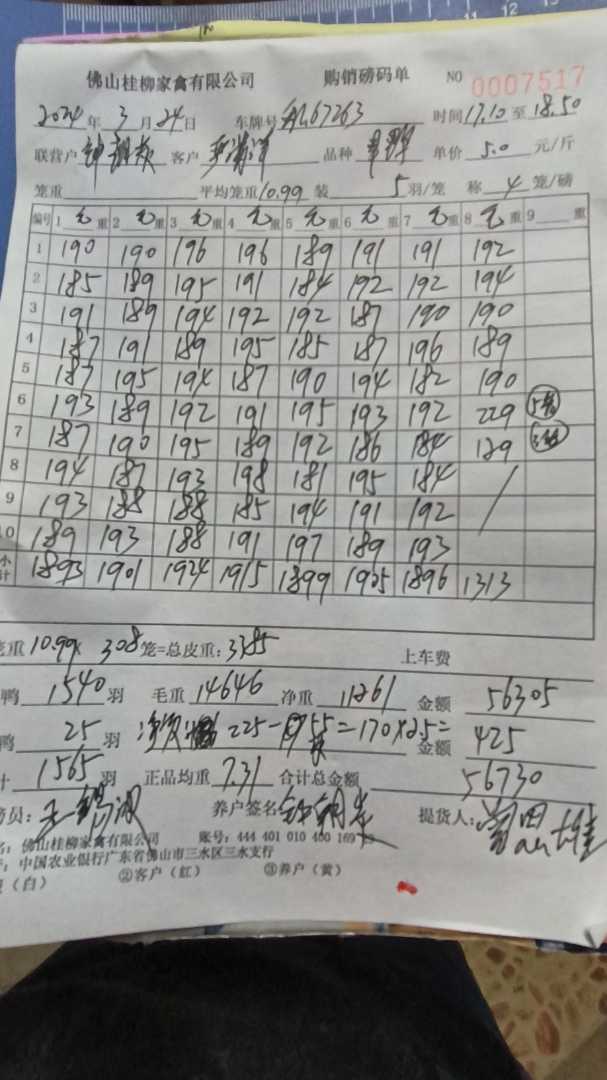 佛山桂柳家禽有限公司 购销磅码单 NO 0007517
2024年3月24日 车牌号 67263 时间17.10至18.50
联营户 客户 品种 单价 5.0 元/斤
笼重 平均笼重10.99 装 5 羽/笼 称 4 笼/磅
编号 1 毛重 2 毛重 3 毛重 4 毛重 5 毛重 6 毛重 7 毛重 8 毛重 9 重
1 190 190 196 196 189 191 191 192
2 185 189 195 191 184 192 192 194
3 191 189 194 192 192 187 190 190
4 187 191 189 195 185 187 196 189
5 187 195 194 187 190 194 182 190
6 193 189 192 191 195 193 192 229
7 187 190 195 189 192 186 184 129
8 194 187 193 198 181 195 184
9 193 188 188 185 194 191 192
10 189 193 188 191 197 189 193
小计 1893 1901 1924 1915 1899 1905 1896 1313
笼重 10.99× 308 笼=总皮重: 3385 上车费
鸭 1540 羽 毛重 14646 净重 11261 金额 56305
鸭 25 羽 225-55=170×2.5= 金额 425
计 1565 羽 正品均重 7.31 合计总金额 56730
务员: 养户签名: 提货人:
名: 佛山桂柳家禽有限公司 账号: 444 401 010 400 169
行: 中国农业银行广东省佛山市三水区三水支行
(白) ②客户(红) ③养户(黄)